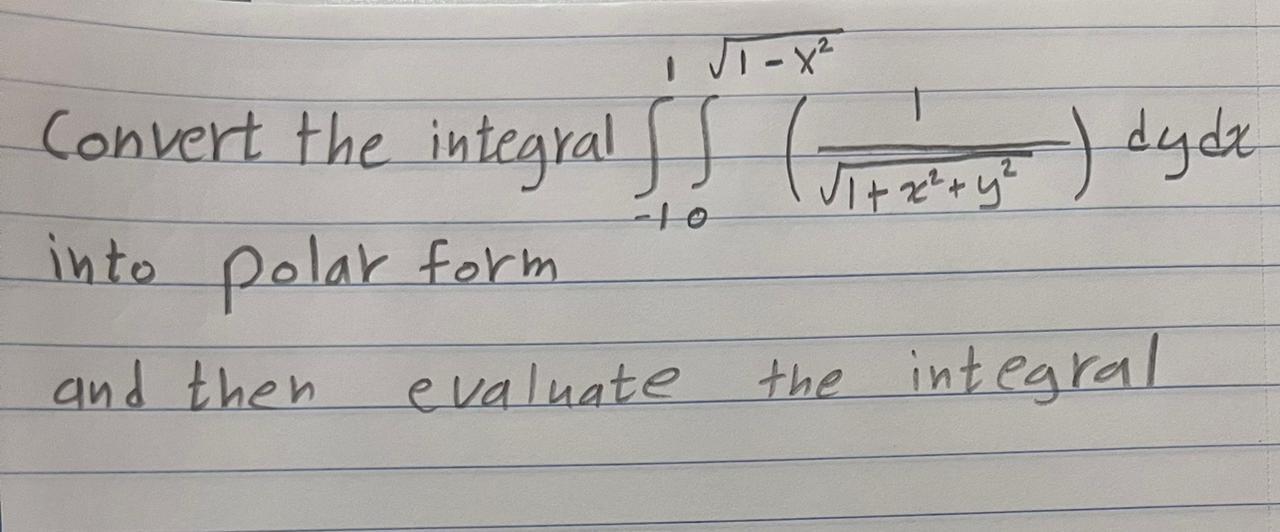 Convert the integral ∫_{-1}^{1} ∫_{0}^{√(1-x²)} (1/√(1+x²+y²)) dydx
into polar form
and then evaluate the integral